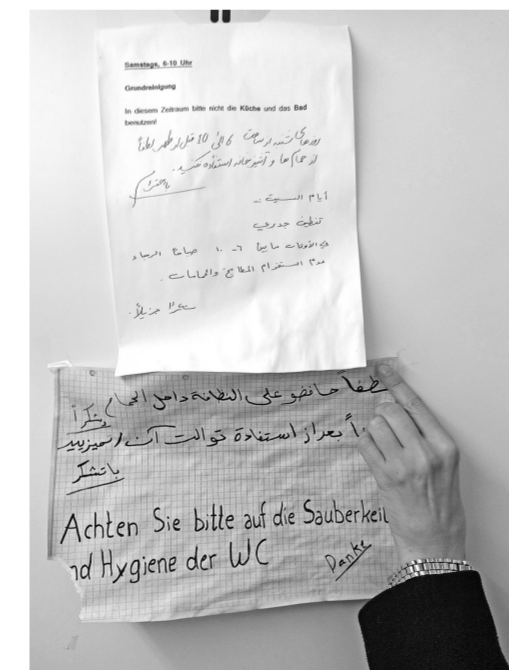 Samstags, 6-10 Uhr
Grundreinigung
In diesem Zeitraum bitte nicht die Küche und das Bad
benutzen!
روزهای شنبه از ساعت 6 الی 10 قبل از ظهر لطفاً
از حمام ها و آشپزخانه استفاده نکنید.
با تشکر
أيام السبت :-
تنظيف جدري
في الأوقات ما بين ٦-١٠ صباحاً الرجاء
عدم استخدام المطابخ والحمامات.
شكراً جزيلاً.
طفاً حافضو على النظافة داخل الحمام وشكراً
بعد از استفادة توالت آن
باتشكر
Achten Sie bitte auf die Sauberkei
nd Hygiene der WC
Danke